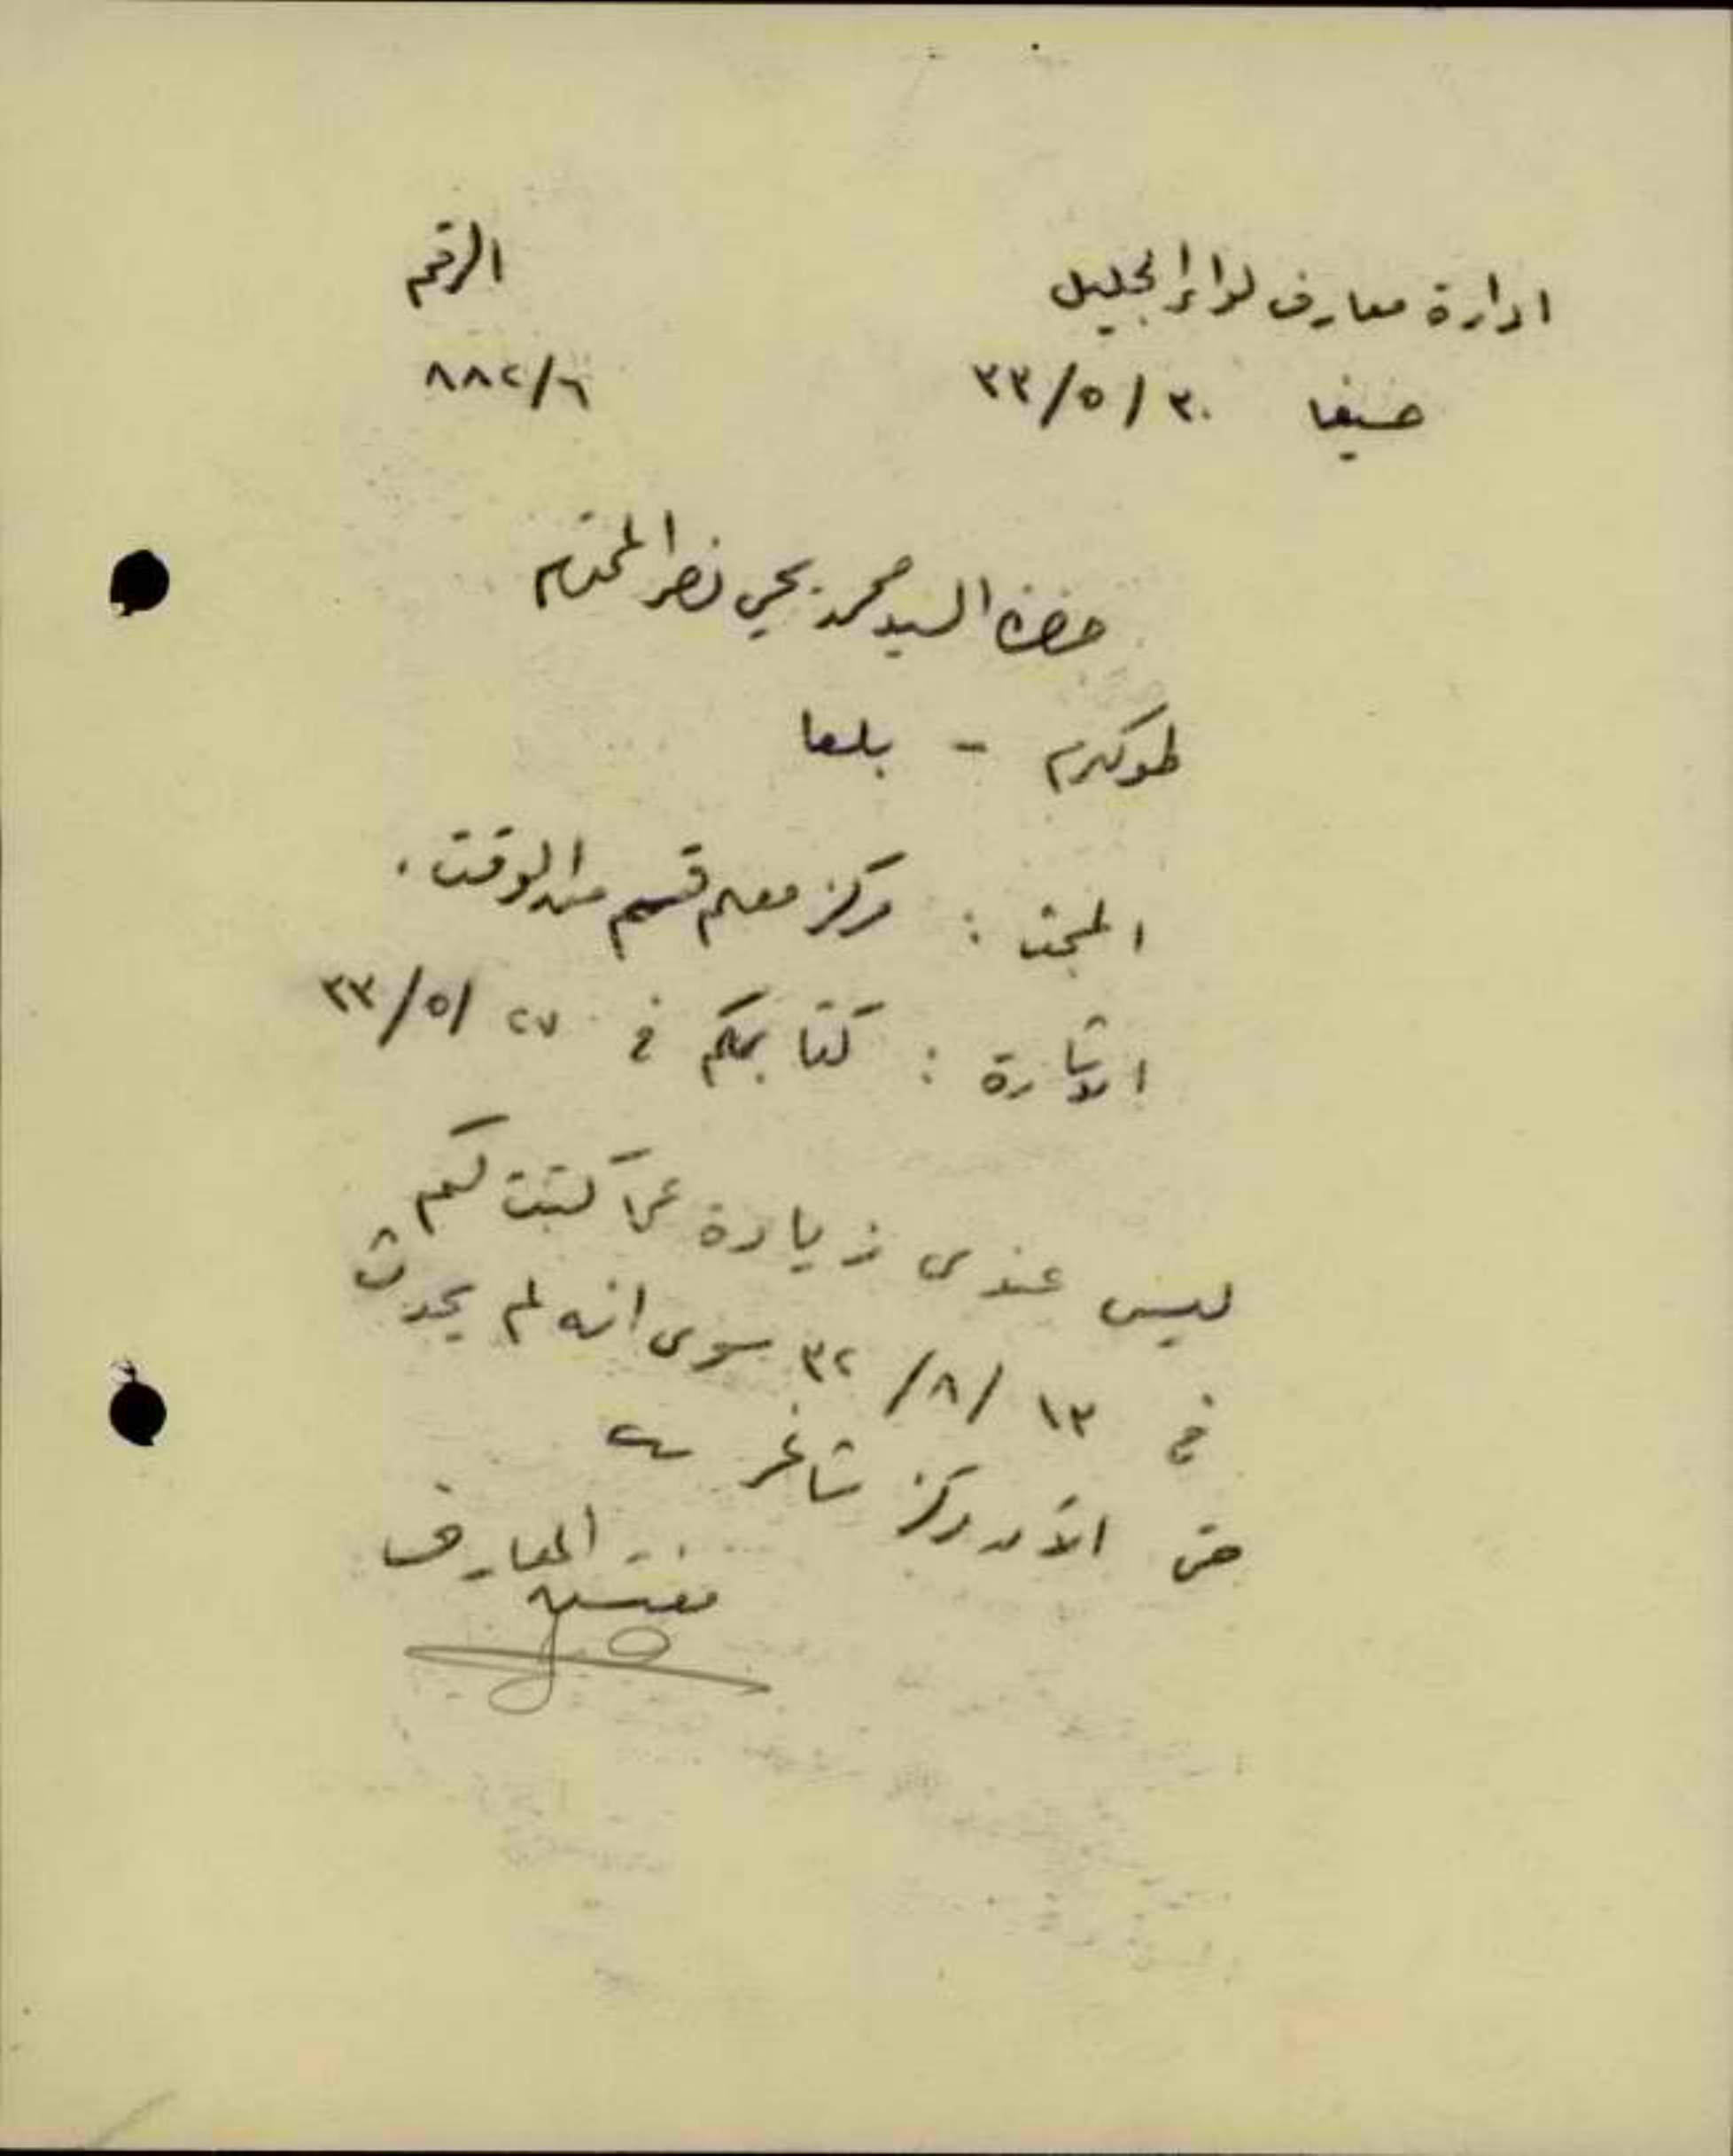 ادارة معارف لواء الجليل
الرقم
حيفا ٣٠/٥/٣٣
٨٨٢/٦
حضرة السيد محمد يحيى نصر المحترم
طولكرم - بلعا
المبحث : مركز معلم قسم من الوقت .
الاشارة : كتابكم في ٢٧/٥/٣٣
ليس عندي زيادة عما كتبت لكم
في ١٣/٨/٣٢ سوى انه لم يحدث
حتى الآن مركز شاغر
مفتش المعارف